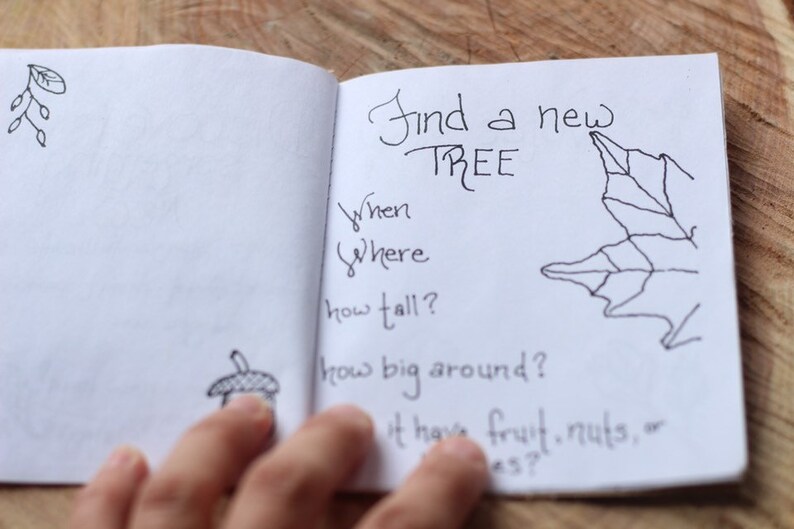 Find a new
TREE
When
Where
how tall?
how big around?
it have fruit, nuts, or